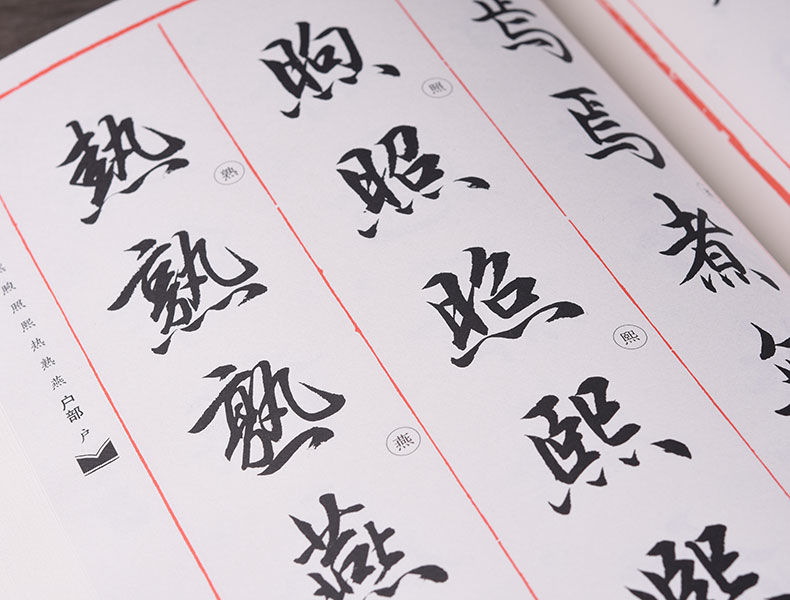 焉焉煮
煦照照照熙熙熙
熱熟熟熟燕燕
煦照熙热熟燕户部户